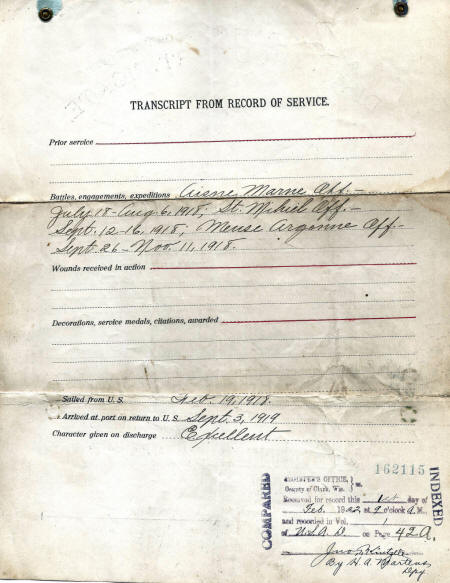 TRANSCRIPT FROM RECORD OF SERVICE.
Prior service
Battles, engagements, expeditions Aisne Marne Off.-
July 18-Aug 6, 1918; St. Mihiel Off.-
Sept. 12-16, 1918; Meuse Argonne Off.-
Sept. 26-Nov. 11, 1918.
Wounds received in action
Decorations, service medals, citations, awarded
Sailed from U.S. Feb. 19, 1918.
Arrived at port on return to U.S. Sept. 3, 1919
Character given on discharge Excellent
162115
COMPARED
INDEXED
REGISTER'S OFFICE, } ss.
County of Clark, Wis.
Received for record this 1st day of
Feb. 1922, at 9 o'clock A.M.
and recorded in Vol. 1
of U.S.A.D. on Page 42A.
Jno.
By H. A. Martens,
Dpy.